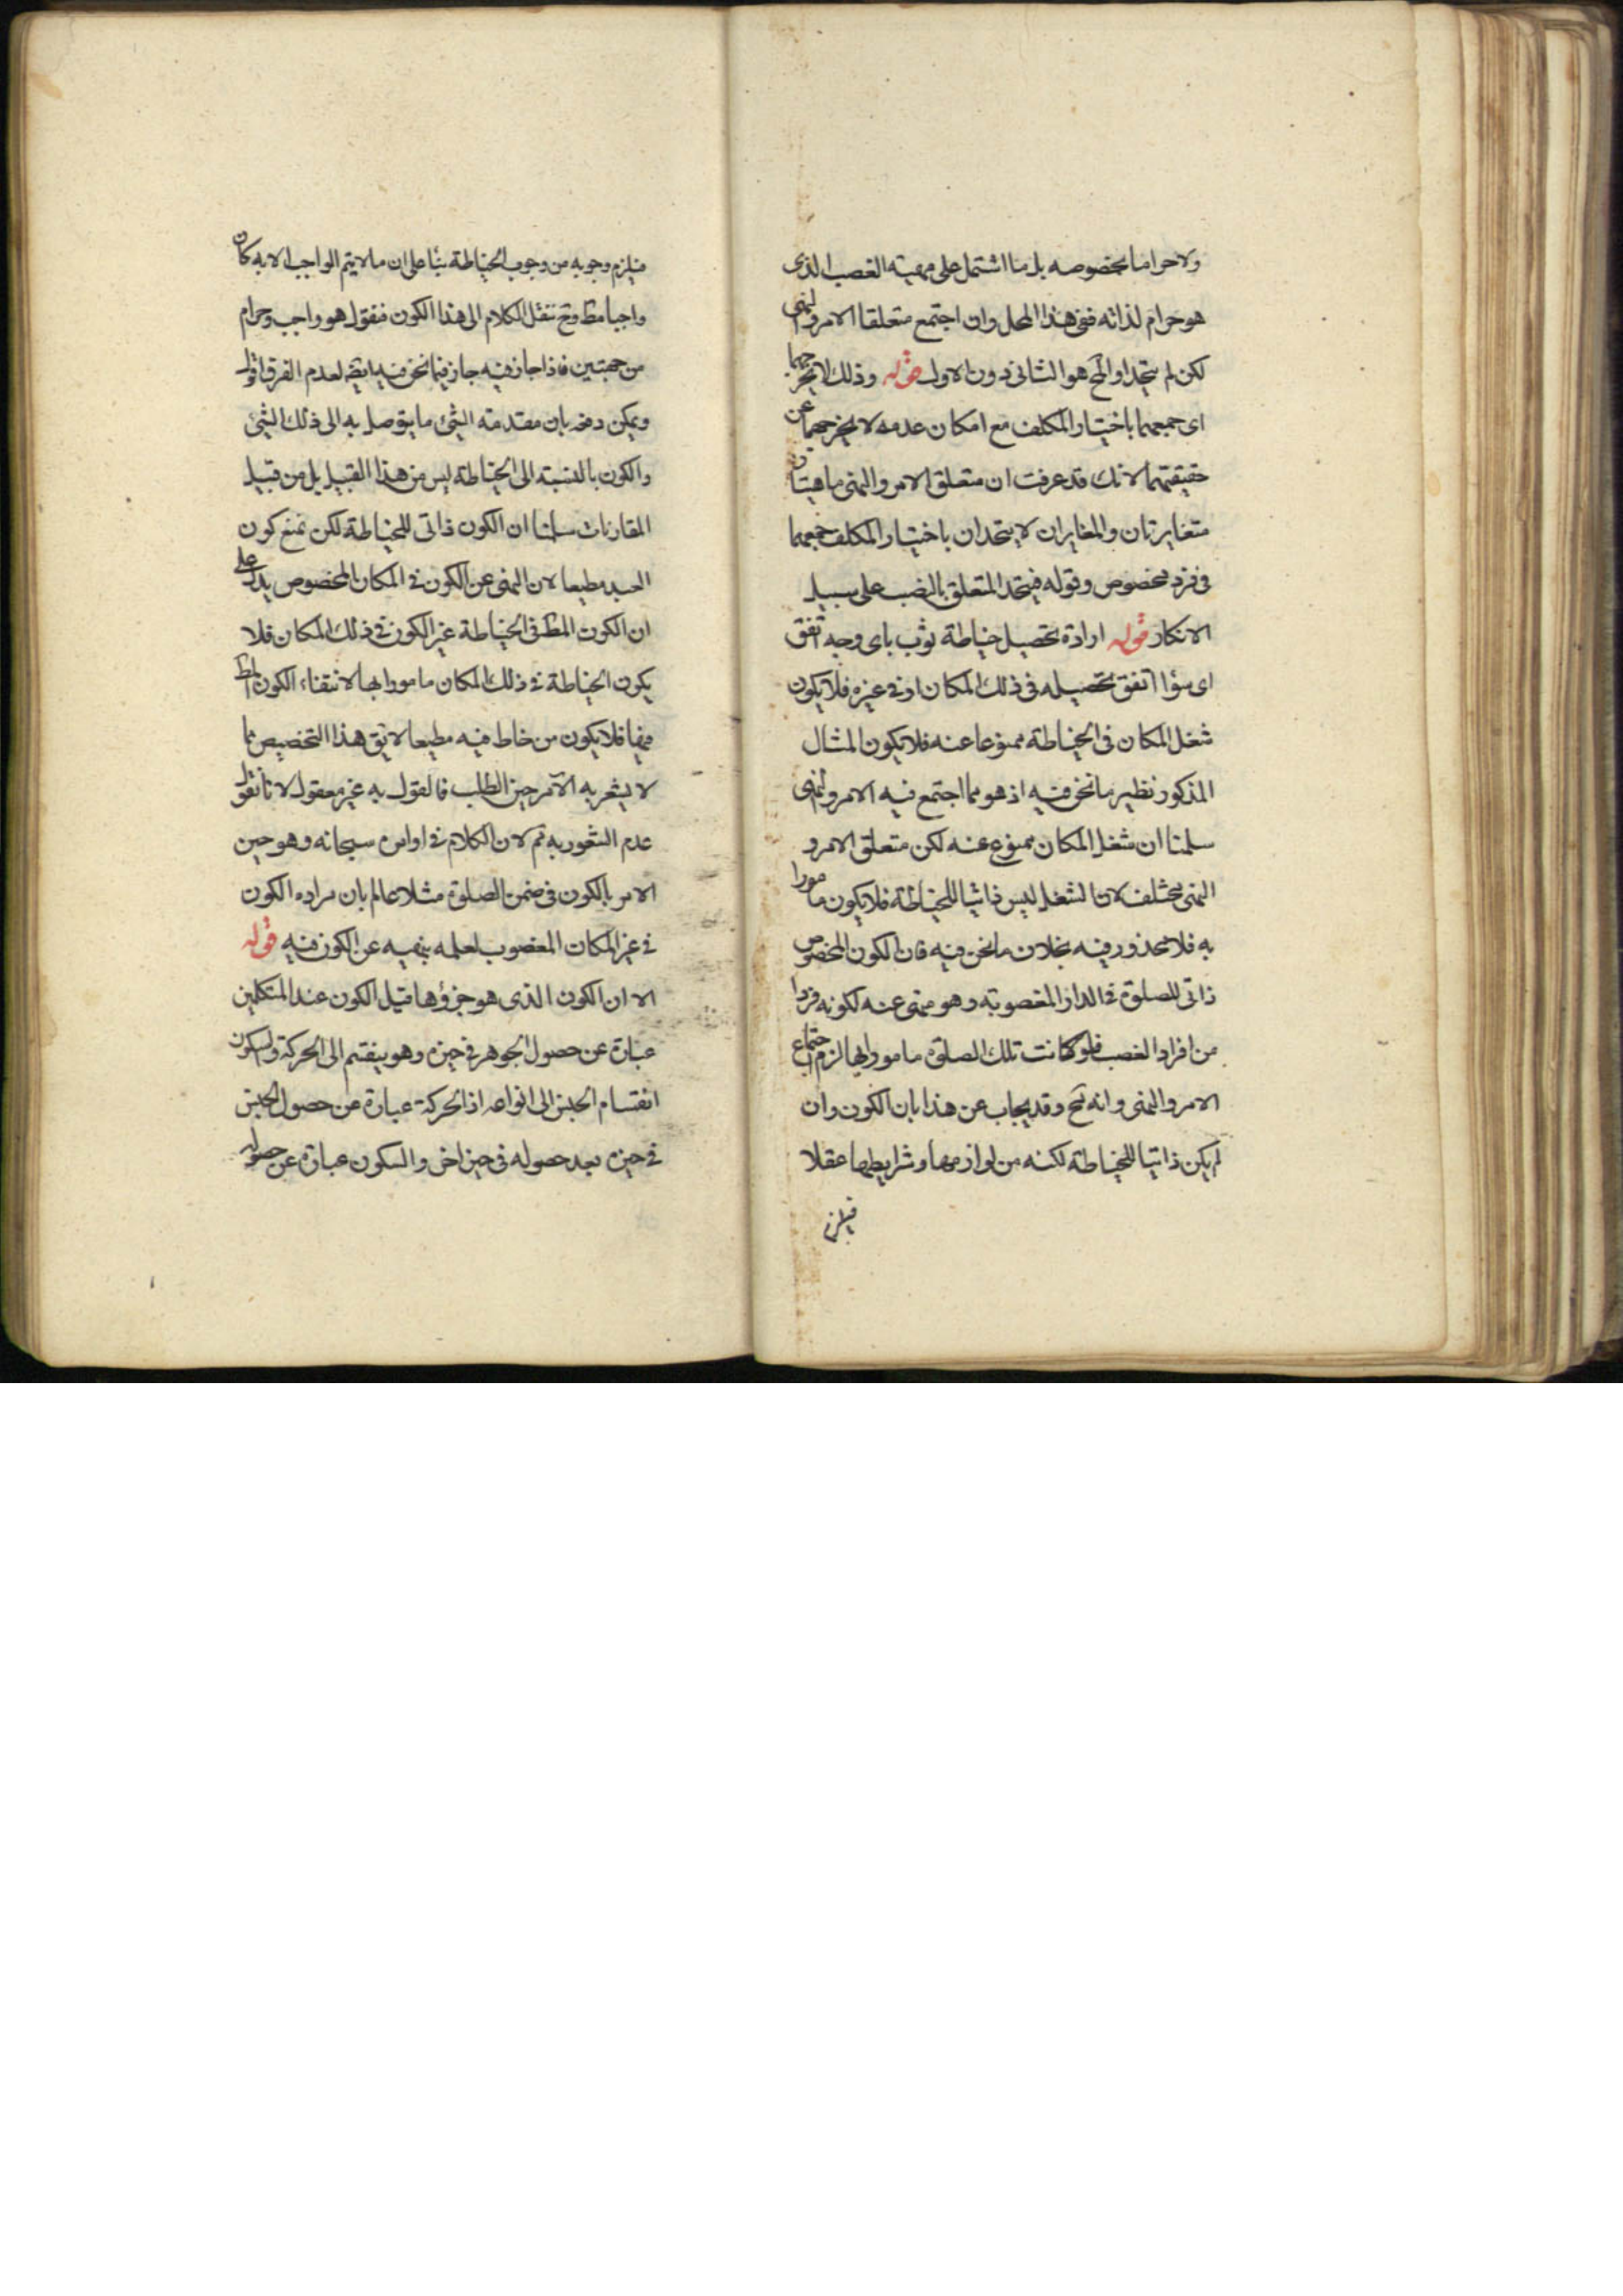 ولا حراما بخصوصه بل ما اشتمل على مهية الغصب الذى
هو حرام لذاته ففى هذا المحل وان اجتمع متعلقا الامر والنهى
لكن لم يتحدا والمح هو الثانى دون الاول قوله وذلك لا يخرجهما
اى جمعهما باختيار المكلف مع امكان عدمه لا يخرجهما عن
حقيقتهما لانك قد عرفت ان متعلق الامر والنهى ماهيتان
متغايرتان والمغايران لا يتحدان باختيار المكلف جمعهما
فى فرد مخصوص وقوله فيتحد المتعلق بالنصب على سبيل
الانكار قوله ارادة تحصيل خياطة ثوب باى وجه اتفق
اى سؤا اتفق تحصيله فى ذلك المكان او فى غيره فلا يكون
شغل المكان فى الخياطة ممنوعا عنه فلا يكون المثال
المذكور نظير ما نحن فيه اذ هو مما اجتمع فيه الامر والنهى
سلمنا ان شغل المكان ممنوع عنه لكن متعلق الامر و
النهى مختلف لان الشغل ليس ذاتيا للخياطة فلا يكون مامورا
به فلا محذور فيه بخلاف ما نحن فيه فان الكون المخصوص
ذاتى للصلوة فى الدار المغصوبة وهو منهى عنه لكونه فردا
من افراد الغصب فلو كانت تلك الصلوة مامورا بها لزم اجتماع
الامر والنهى وانه مح وقد يجاب عن هذا بان الكون وان
لم يكن ذاتيا للخياطة لكنه من لوازمها وشرايطها عقلا
فيلزم
فيلزم وجوبه من وجوب الخياطة بنا على ان ما لا يتم الواجب الا به كان
واجبا مط وح ننقل الكلام الى هذا الكون فنقول هو واجب وحرام
من جهتين فاذا جاز فيه جاز فيما نحن فيه ايضا لعدم الفرق اقول
ويمكن دفعه بان مقدمة الشئ ما يتوصل به الى ذلك الشئ
والكون بالنسبة الى الخياطة ليس من هذا القبيل بل من قبيل
المقارنات سلمنا ان الكون ذاتى للخياطة لكن نمنع كون
العبد مطيعا لان النهى عن الكون فى المكان المخصوص يدل على
ان الكون المط فى الخياطة غير الكون فى ذلك المكان فلا
يكون الخياطة فى ذلك المكان مامورا بها لانتفاء الكون المط
فيها فلا يكون من خاط فيه مطيعا لا يق هذا التخصيص مما
لا يشعر به الآمر حين الطلب فالقول به غير معقول لانا نقول
عدم الشعور به ثم لان الكلام فى اوامره سبحانه وهو حين
الامر بالكون فى ضمن الصلوة مثلا عالم بان مراده الكون
فى غير المكان المغصوب لعلمه بنهيه عن الكون فيه قوله
الا ان الكون الذى هو جزؤها قيل الكون عند المتكلمين
عبارة عن حصول الجوهر فى حيزه وهو ينقسم الى الحركة والسكون
انقسام الجنس الى انواعه اذ الحركة عبارة عن حصول الجنس
فى حيزه بعد حصوله فى حيز اخر والسكون عبارة عن حصوله